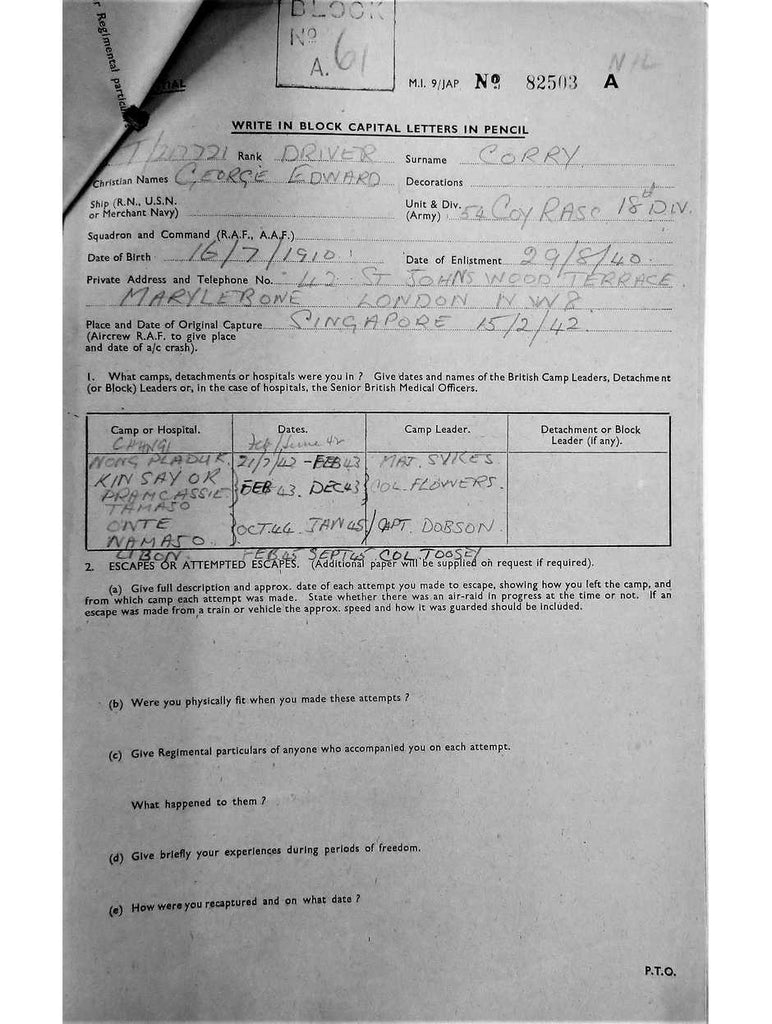 r Regimental particu
BLOCK
Nº
A. 61
NIL
M.I. 9/JAP Nº 82503 A
WRITE IN BLOCK CAPITAL LETTERS IN PENCIL
Rank DRIVER Surname CORRY
Christian Names GEORGE EDWARD Decorations
Ship (R.N., U.S.N. or Merchant Navy) Unit & Div. (Army) 54 COY RASC 18th DIV.
Squadron and Command (R.A.F., A.A.F.)
Date of Birth 16/7/1910 Date of Enlistment 29/8/40
Private Address and Telephone No. 42 ST JOHNS WOOD TERRACE
MARYLEBONE LONDON NW8
Place and Date of Original Capture SINGAPORE 15/2/42
(Aircrew R.A.F. to give place
and date of a/c crash).
1. What camps, detachments or hospitals were you in ? Give dates and names of the British Camp Leaders, Detachment
(or Block) Leaders or, in the case of hospitals, the Senior British Medical Officers.
Camp or Hospital. Dates. Camp Leader. Detachment or Block Leader (if any).
CHANGI Feb/June 42
NONG PLADUK 21/7/42 - FEB 43 MAJ. SYKES
KIN SAYOK
PRAMCASSIE FEB 43. DEC 43 COL. FLOWERS.
TAMASO
ONTE OCT. 44. JAN 45 CAPT. DOBSON.
NAMASO.
UBON. FEB 45 SEPT 45 COL TOOSEY
2. ESCAPES OR ATTEMPTED ESCAPES. (Additional paper will be supplied on request if required).
(a) Give full description and approx. date of each attempt you made to escape, showing how you left the camp, and
from which camp each attempt was made. State whether there was an air-raid in progress at the time or not. If an
escape was made from a train or vehicle the approx. speed and how it was guarded should be included.
(b) Were you physically fit when you made these attempts ?
(c) Give Regimental particulars of anyone who accompanied you on each attempt.
What happened to them ?
(d) Give briefly your experiences during periods of freedom.
(e) How were you recaptured and on what date ?
P.T.O.